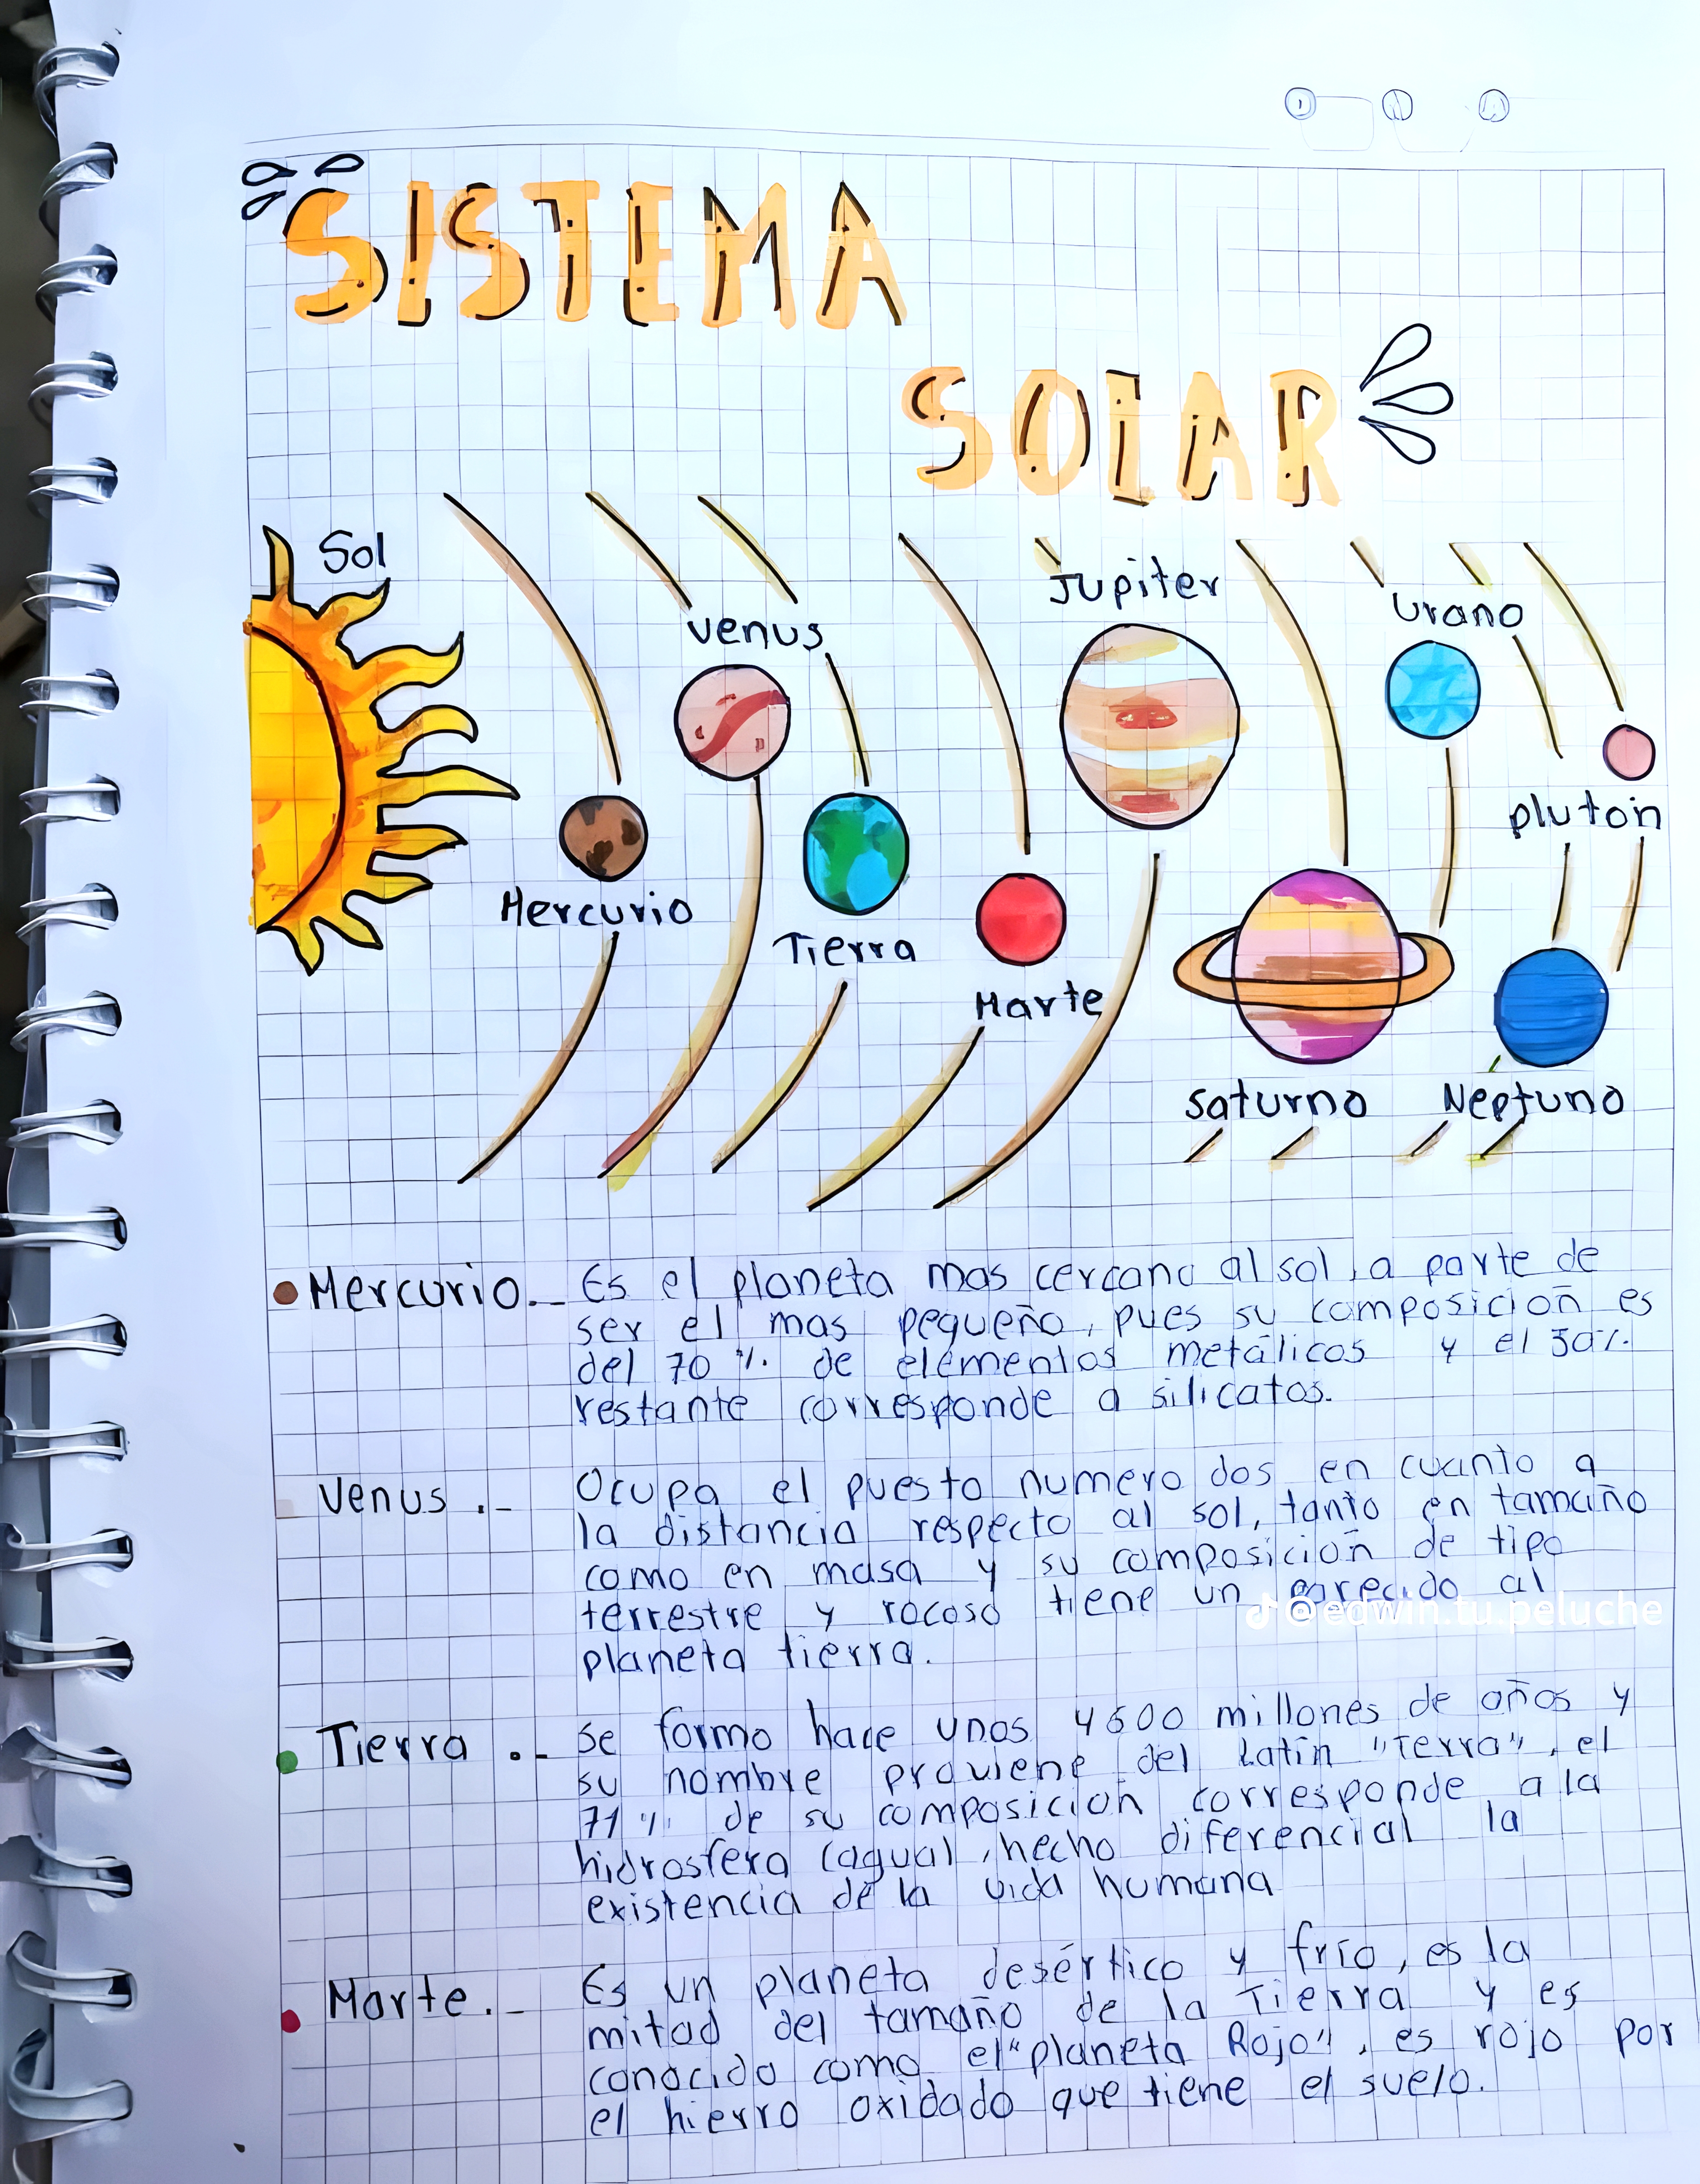 SISTEMA
SOLAR
Sol
Jupiter
Urano
venus
pluton
Mercurio
Tierra
Marte
saturno
Neptuno
Mercurio.- Es el planeta mas cercano al sol, a parte de
ser el mas pequeño, pues su composición es
del 70 % de elementos metálicos y el 30%
restante corresponde a silicatos.
Venus .- Ocupa el puesto numero dos en cuanto a
la distancia respecto al sol, tanto en tamaño
como en masa y su composición de tipo
terrestre y rocoso tiene un parecido al
planeta tierra.
@edwin.tu.peluche
Tierra .- Se formo hace unos 4600 millones de años y
su nombre proviene del Latín "Terra", el
71% de su composición corresponde a la
hidrosfera (agua), hecho diferencial la
existencia de la vida humana
Marte.- Es un planeta desértico y frío, es la
mitad del tamaño de la Tierra y es
conocido como el "planeta Rojo", es rojo por
el hierro oxidado que tiene el suelo.